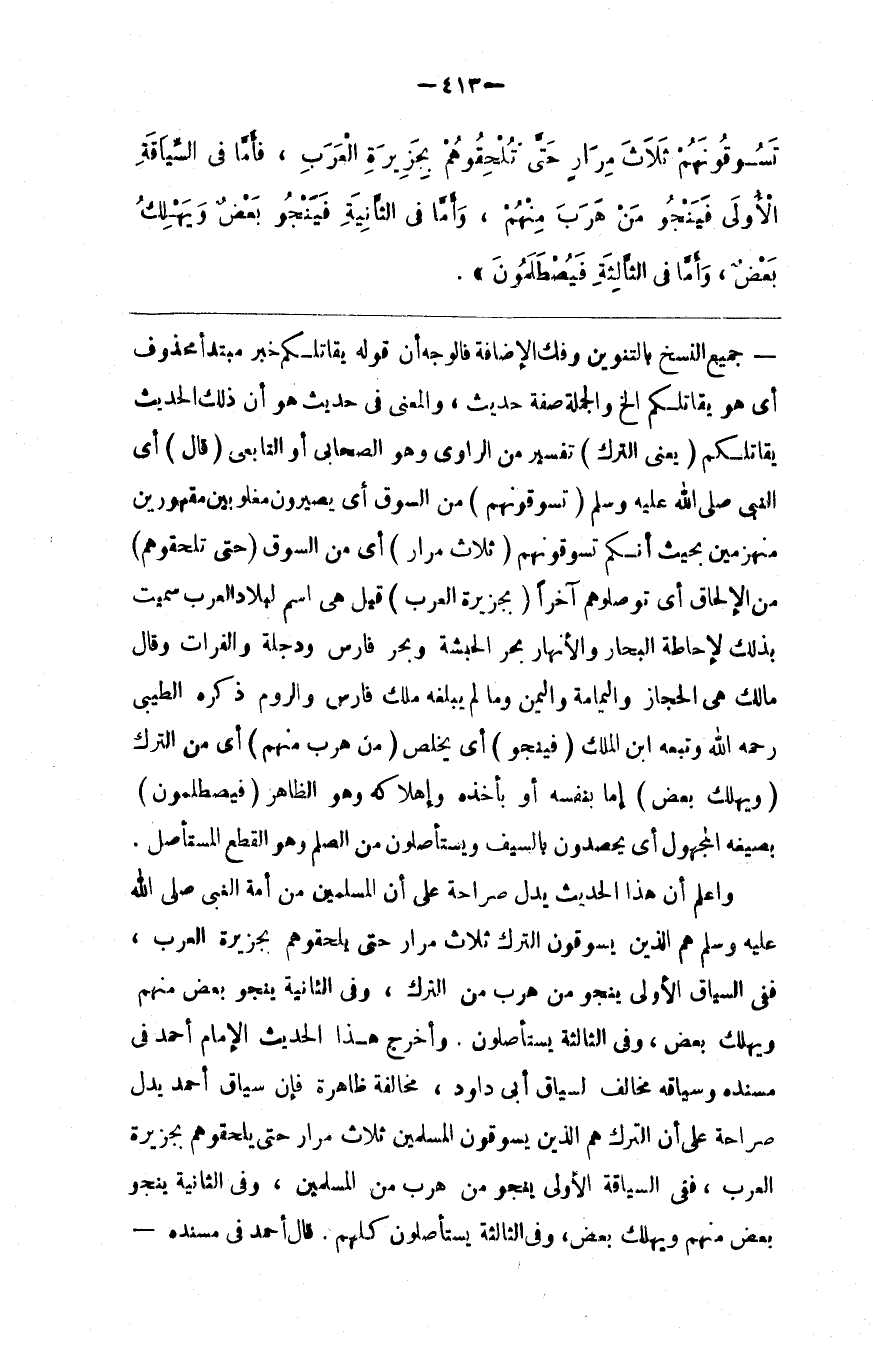 — ٤١٣ —
تَسُـوقُونَهُمْ ثَلَاثَ مِرَارٍ حَتَّى تُلْحِقُوهُمْ بِجَزِيرَةِ الْعَرَبِ ، فَأَمَّا فى السِّيَاقَةِ
الْأُولَى فَيَنْجُو مَنْ هَرَبَ مِنْهُمْ ، وَأَمَّا فى الثَّانِيَةِ فَيَنْجُو بَعْضٌ وَيَهْلِكُ
بَعْضٌ ، وَأَمَّا فى الثَّالِثَةِ فَيُصْطَلَمُونَ » .
— جميع النسخ بالتنوين وفك الإضافة فالوجه أن قوله يقاتلـكم خبر مبتدأ محذوف
أى هو يقاتلـكم الخ والجملة صفة حديث ، والمعنى فى حديث هو أن ذلك الحديث
يقاتلـكم ( يعنى الترك ) تفسير من الراوى وهو الصحابى أو التابعى ( قال ) أى
النبى صلى الله عليه وسلم ( تسوقونهم ) من السوق أى يصيرون مغلوبين مقهورين
منهزمين بحيث أنـكم تسوقونهم ( ثلاث مرار ) أى من السوق (حتى تلحقوهم)
من الإلحاق أى توصلوهم آخراً ( بجزيرة العرب ) قيل هى اسم لبلاد العرب سميت
بذلك لإحاطة البحار والأنهار بحر الحبشة وبحر فارس ودجلة والفرات وقال
مالك هى الحجاز واليمامة واليمن وما لم يبلغه ملك فارس والروم ذكره الطيبى
رحمه الله وتبعه ابن الملك ( فينجو ) أى يخلص ( من هرب منهم ) أى من الترك
( ويهلك بعض ) إما بنفسه أو بأخذه وإهلاكه وهو الظاهر ( فيصطلمون )
بصيغه المجهول أى يحصدون بالسيف ويستأصلون من الصلم وهو القطع المستأصل .
واعلم أن هذا الحديث يدل صراحة على أن المسلمين من أمة النبى صلى الله
عليه وسلم هم الذين يسوقون الترك ثلاث مرار حتى يلحقوهم بجزيرة العرب ،
ففى السياق الأولى ينجو من هرب من الترك ، وفى الثانية ينجو بعض منهم
ويهلك بعض ، وفى الثالثة يستأصلون . وأخرج هـذا الحديث الإمام أحمد فى
مسنده وسياقه مخالف لسياق أبى داود ، مخالفة ظاهرة فإن سياق أحمد يدل
صراحة على أن الترك هم الذين يسوقون المسلمين ثلاث مرار حتى يلحقوهم بجزيرة
العرب ، ففى السياقة الأولى ينجو من هرب من المسلمين ، وفى الثانية ينجو
بعض منهم ويهلك بعض ، وفى الثالثة يستأصلون كـلهم . قال أحمد فى مسنده —